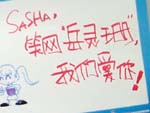 SASHA.
笑网"岳灵珊",
我们爱你!